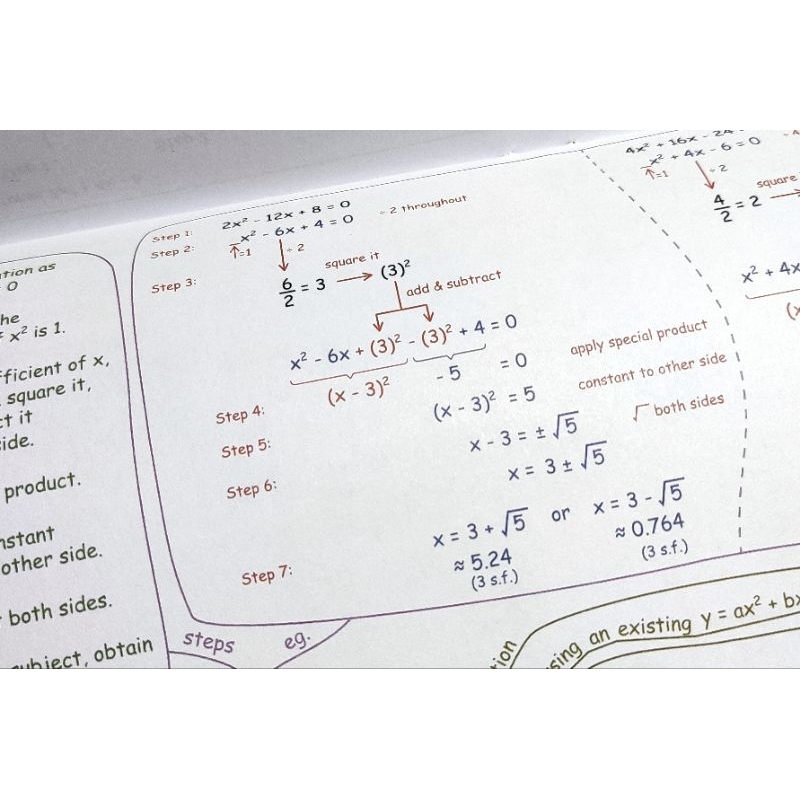 tion as
0
he
x² is 1.
fficient of x,
square it,
ct it
ide.
product.
nstant
other side.
both sides.
subject, obtain
Step 1: 2x² - 12x + 8 = 0
Step 2: x² - 6x + 4 = 0 ÷ 2 throughout
↑=1 ÷ 2
Step 3: 6/2 = 3 square it → (3)²
add & subtract
x² - 6x + (3)² - (3)² + 4 = 0
Step 4: (x - 3)² - 5 = 0 apply special product
Step 5: (x - 3)² = 5 constant to other side
Step 6: x - 3 = ± √5 √ both sides
x = 3 ± √5
Step 7: x = 3 + √5 or x = 3 - √5
≈ 5.24 ≈ 0.764
(3 s.f.) (3 s.f.)
4x² + 16x - 24
x² + 4x - 6 = 0
↑=1 ÷ 2
4/2 = 2 square
x² + 4x
(x
steps eg.
tion
sing an existing y = ax² + bx